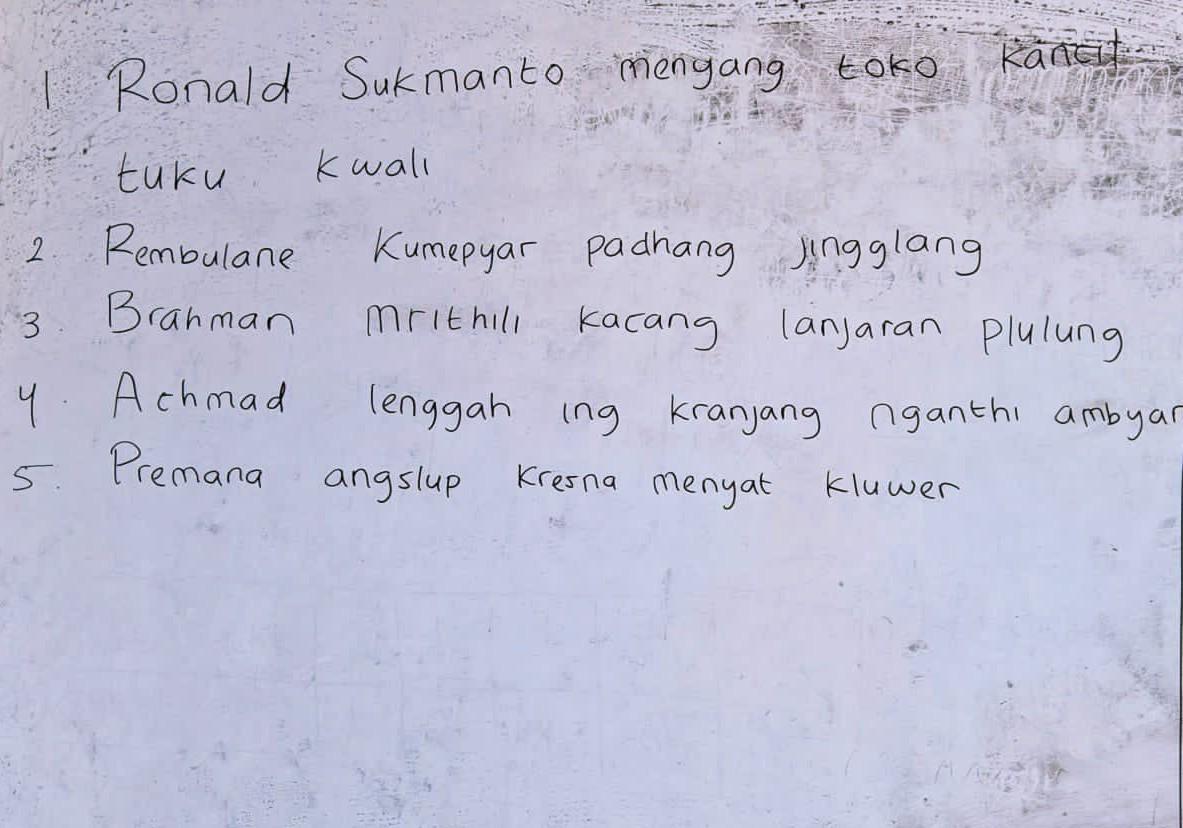 1 Ronald Sukmanto menyang toko Kancil
tuku kwali
2. Rembulane Kumepyar padhang jingglang
3. Brahman mrithili kacang lanjaran plulung
4. Achmad lenggah ing kranjang nganthi ambyar
5. Premana angslup Kresna menyat kluwer